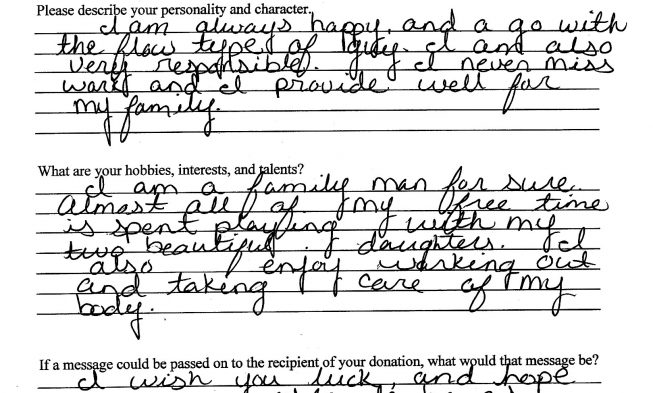 Please describe your personality and character.
I am always happy, and a go with
the flow type of guy. I and also
very responsible. I never miss
work and I provide well for
my family.
What are your hobbies, interests, and talents?
I am a family man for sure.
Almost all of my free time
is spent playing with my
two beautiful daughters. I
also enjoy working out
and taking care of my
body.
If a message could be passed on to the recipient of your donation, what would that message be?
I wish you luck, and hope